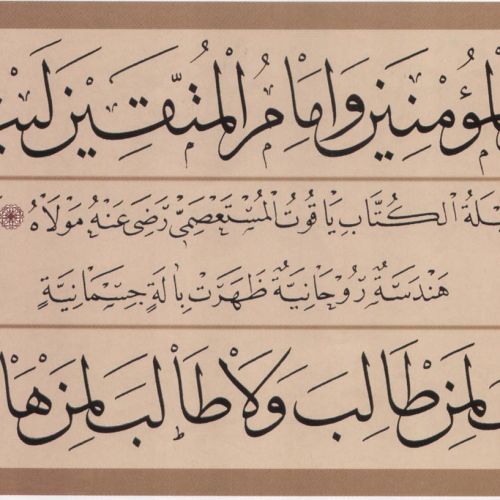 لْمُؤْمِنِينَ وَاِمَامُ الْمُتَّقِينَ
بْلَةُ الْكُتَّابِ يَاقُوتُ الْمُسْتَعْصِمِىّ رَضِىَ عَنْهُ مَوْلَاهُ
هَنْدَسَةٌ رُوحَانِيَّةٌ ظَهَرَتْ بِاٰلَةٍ جِسْمَانِيَّةٍ
لِمَنْ طَالِبَ وَلَا طَالِبَ لِمَنْ هَا